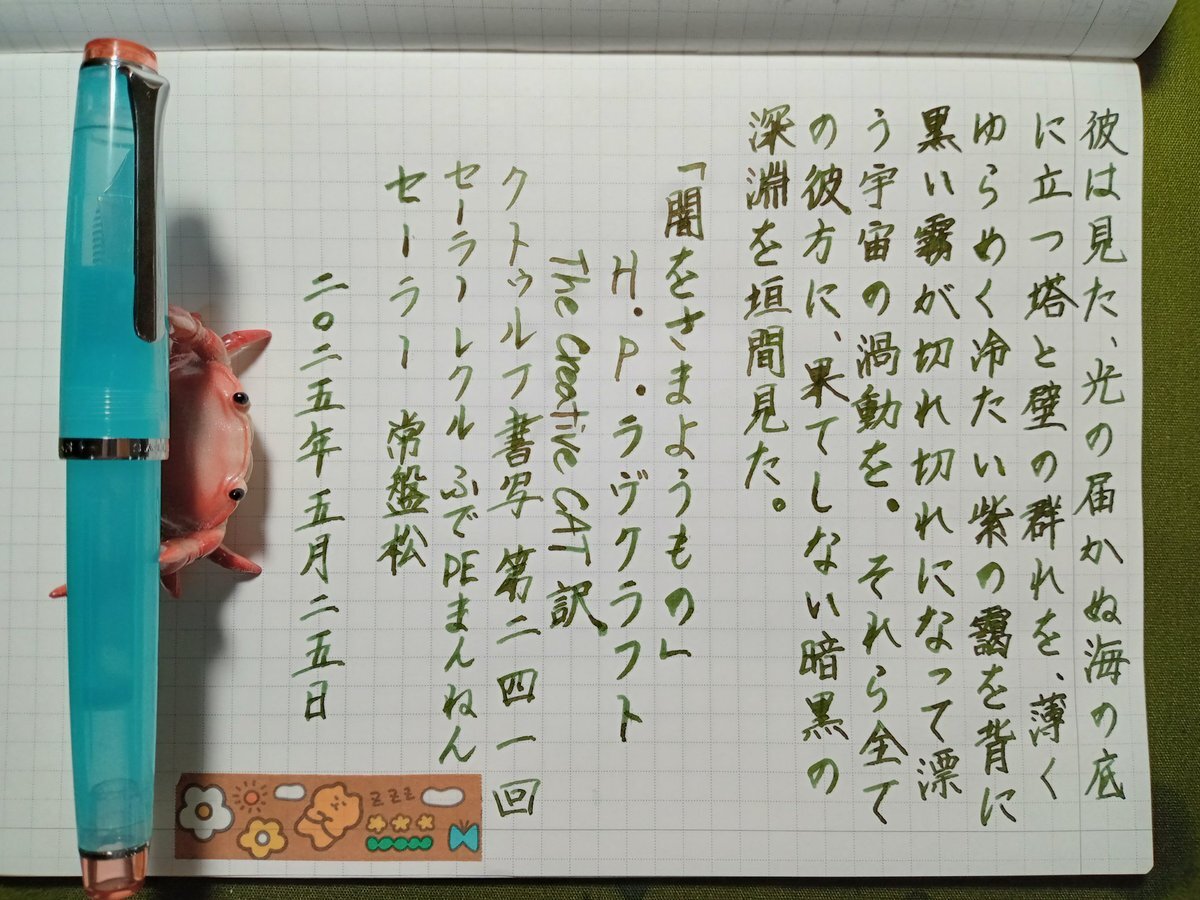 彼は見た、光の届かぬ海の底
に立つ塔と壁の群れを、薄く
ゆらめく冷たい紫の靄を背に
黒い霧が切れ切れになって漂
う宇宙の渦動を。それら全て
の彼方に、果てしない暗黒の
深淵を垣間見た。
「闇をさまようもの」
H.P.ラヴクラフト
The Creative CAT 訳
クトゥルフ書写 第二四一回
セーラー レクル ふでDEまんねん
セーラー 常盤松
二〇二五年五月二五日
zzz